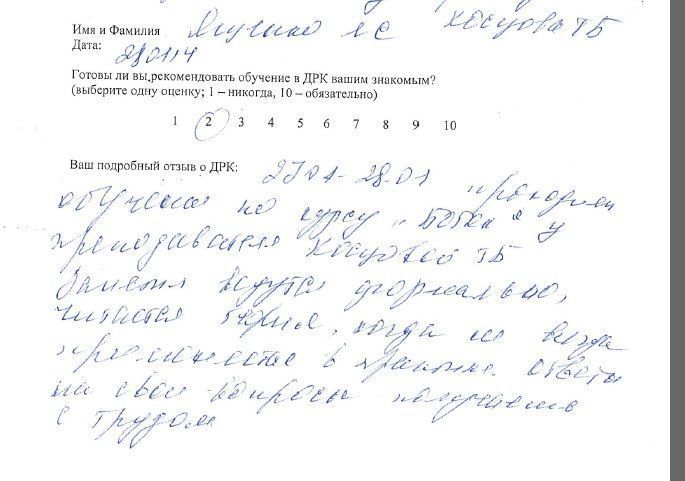 Имя и Фамилия Якушко АС Косцова ТБ
Дата: 280114
Готовы ли вы рекомендовать обучение в ДРК вашим знакомым?
(выберите одну оценку; 1 – никогда, 10 – обязательно)
1 2 3 4 5 6 7 8 9 10
Ваш подробный отзыв о ДРК: 2701 - 28.01 проходили
обучение по курсу у
преподавателя Косцовой ТБ
Занятия ведутся формально,
читается теория, когда не всегда
в практике. Ответы
на свои вопросы получаешь
с трудом